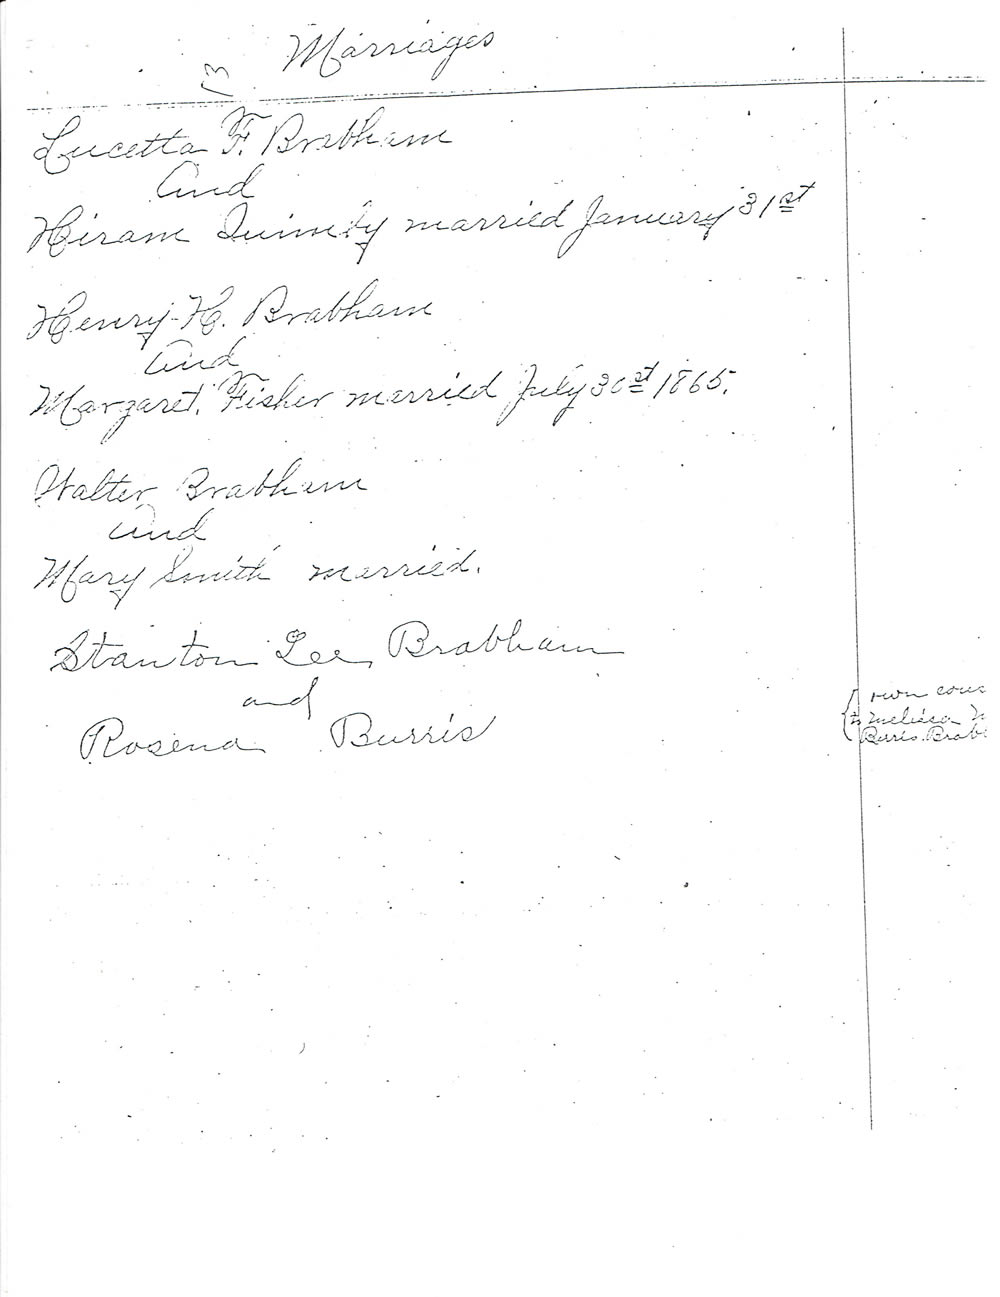 Marriages
13
Lucetta F. Brabham
And
Hiram Quimby married January 31st
Henry H. Brabham
And
Margaret. Fisher married July 30st 1865.
Walter Brabham
And
Mary Smith married.
Stanton Lee Brabham
and
Rosena Burris
own cous
to Melissa M
Burris Brab